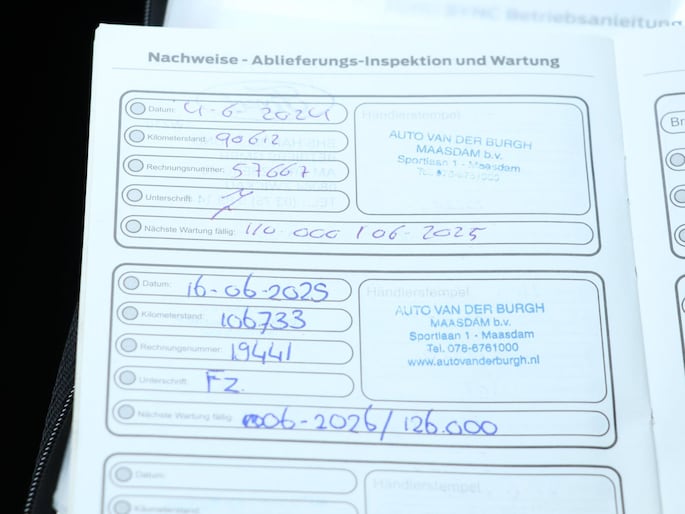 SYNC Betriebsanleitung
Nachweise - Ablieferungs-Inspektion und Wartung
Datum: 4-6-2024
Kilometerstand: 90612
Rechnungsnummer: 57667
Unterschrift:
Nächste Wartung fällig: 110.000 / 06-2025
Händlerstempel
AUTO VAN DER BURGH
MAASDAM b.v.
Sportlaan 1 - Maasdam
Br
Datum: 16-06-2025
Kilometerstand: 106733
Rechnungsnummer: 19441
Unterschrift: Fz.
Nächste Wartung fällig: 06-2026/126.000
Händlerstempel
AUTO VAN DER BURGH
MAASDAM b.v.
Sportlaan 1 - Maasdam
Tel. 078-6761000
www.autovanderburgh.nl
Datum:
Kilometerstand:
Händlerstempel